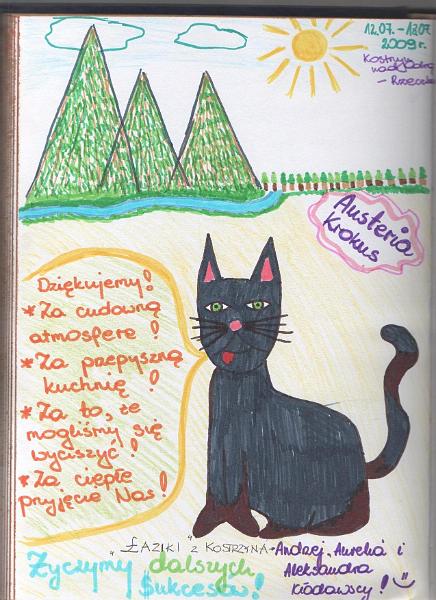 12.07. – 18.07
2009 r.
Kostrzyn
nad Odrą
– Rzeczka
Austeria
Krokus
Dziękujemy!
* Za cudowną
atmosferę!
* Za przepyszną
kuchnię!
* Za to, że
mogliśmy się
wyciszyć!
* Za ciepłe
przyjęcie Nas!
„ŁAZIKI" z KOSTRZYNA - Andrzej, Aurelia i
Aleksandra
Kłódawscy!
Życzymy dalszych
Sukcesów!